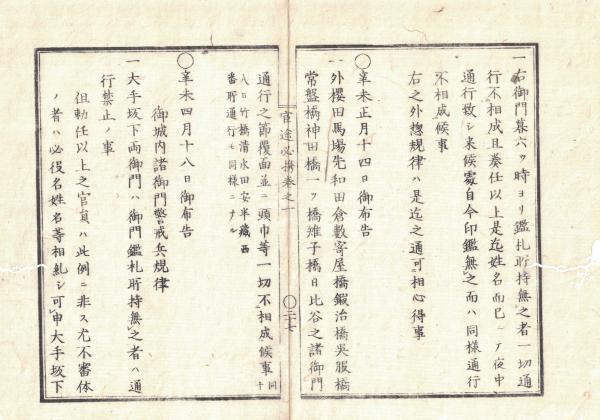 一右御門暮六ツ時ヨリ鑑札所持無之者一切通
行不相成且奏任以上是迄姓名而已ニテ夜中
通行致シ来候處自今印鑑無之而ハ同様通行
不相成候事
右之外惣規律ハ是迄之通可相心得事
〇辛未正月十四日御布告
一外櫻田馬場先和田倉數寄屋橋鍜治橋呉服橋
常盤橋神田橋一ツ橋雉子橋日比谷之諸御門
官途必携巻之一
〇二十七
通行之節覆面並ニ頭巾等一切不相成候事
同十
八日竹橋清水田安半藏西
番所通行モ同様ニナル
〇辛未四月十八日御布告
御城内諸御門警戒兵規律
一大手坂下両御門ハ御門鑑札所持無之者ハ通
行禁止ノ事
但勅任以上之官員ハ此例ニ非ス尤不審体
ノ者ハ必役名姓名等相糺シ可申大手坂下